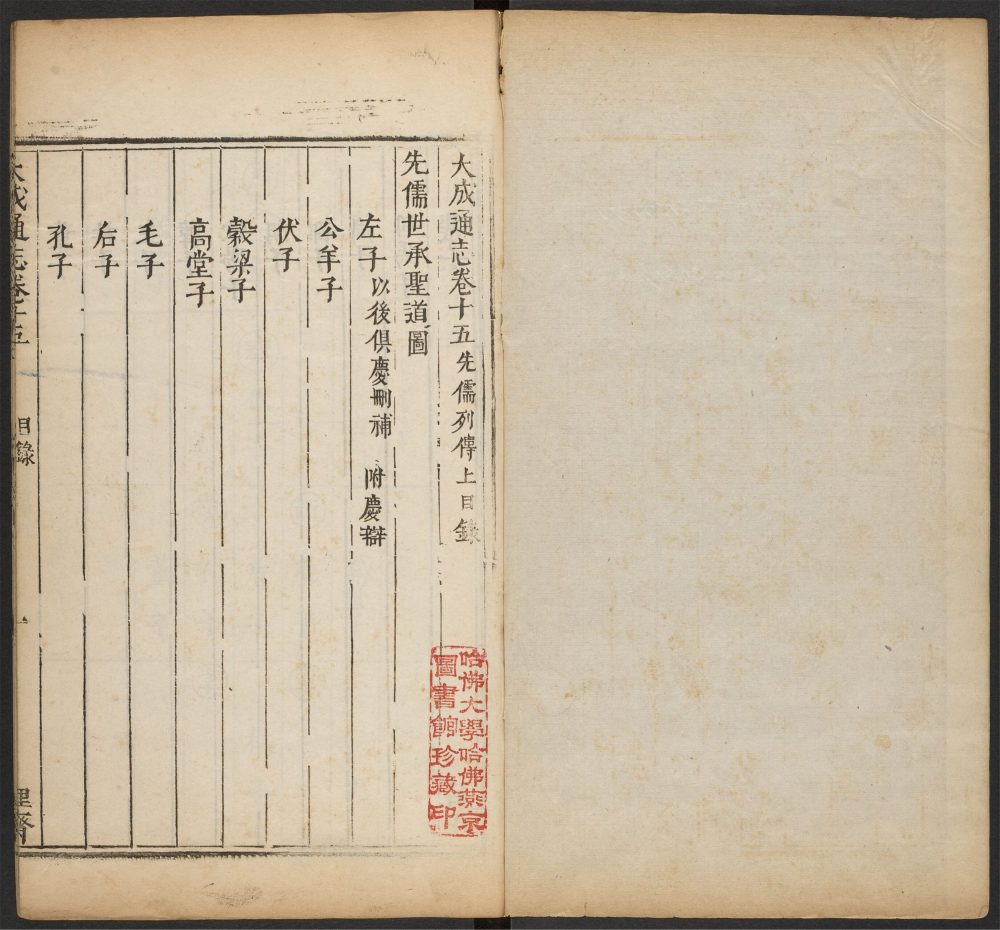 大成通志卷十五先儒列傳上目錄
先儒世承聖道圖
左子 以後俱慶刪補 附慶辯
公羊子
伏子
穀梁子
高堂子
毛子
后子
孔子
大成通志卷十五 目錄 一 理齋
哈佛大學哈佛燕京
圖書館珍藏印